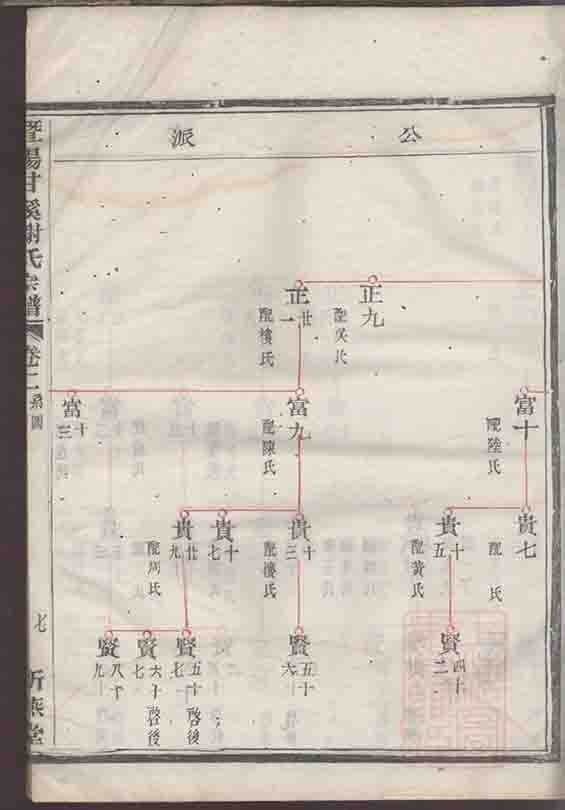 公派
正九
配吳氏
正廿一
配樓氏
富十
配陸氏
富九
配陳氏
富十三
貴七
配 氏
貴十五
配黃氏
貴十三
配樓氏
貴十七
貴廿九
配周氏
賢四十二
賢五十六
賢五十七
啓後
賢六十七
啓後
賢八十九
暨陽甘溪謝氏宗譜
卷二
系圖
七